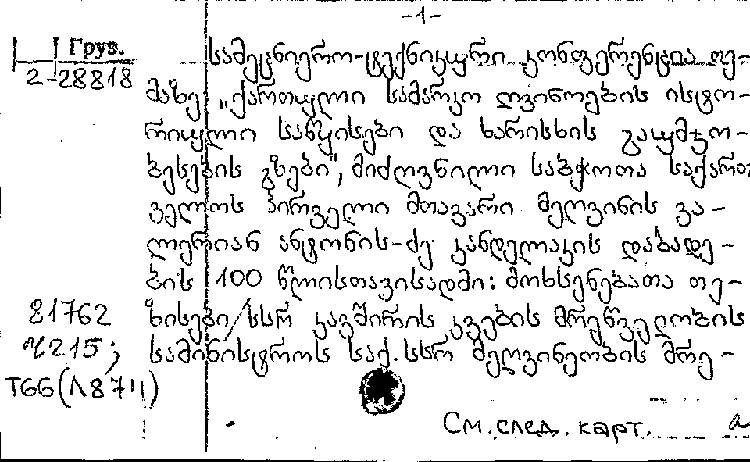 -1-
Груз.
2-28818
სამეცნიერო-ტექნიკური კონფერენცია თე-
მაზე „ქართული სამარკო ღვინოების ისტო-
რიული საწყისები და ხარისხის გაუმჯო-
ბესების გზები", მიძღვნილი საბჭოთა საქართ
ველოს პირველი მთავარი მეღვინის ვა-
ლერიან ანტონის-ძე კანდელაკის დაბადე-
ბის 100 წლისთავისადმი: მოხსენებათა თე-
81762 ზისები/სსრ კავშირის კვების მრეწველობის
Ч215; სამინისტროს საქ. სსრ მეღვინეობის მრე-
T66(Л87Ч)
См. след. карт. а